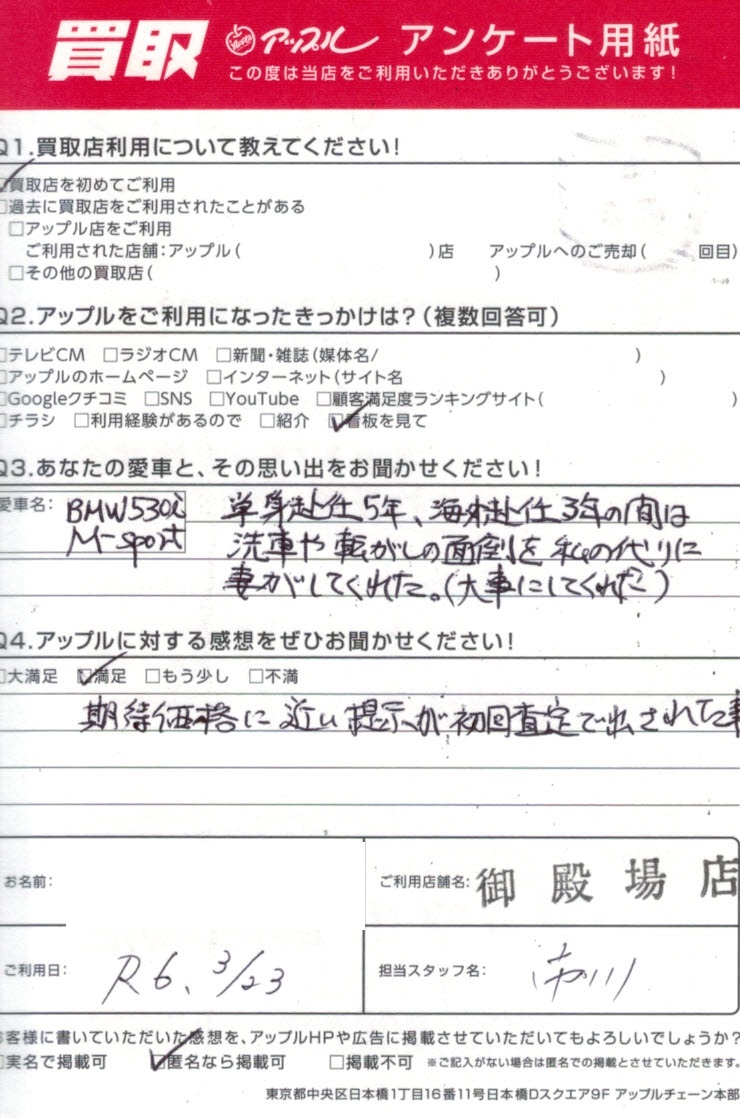 買取 アップル アンケート用紙
この度は当店をご利用いただきありがとうございます!
Q1.買取店利用について教えてください!
買取店を初めてご利用
□過去に買取店をご利用されたことがある
□アップル店をご利用
ご利用された店舗:アップル( )店 アップルへのご売却( 回目)
□その他の買取店( )
Q2.アップルをご利用になったきっかけは?(複数回答可)
□テレビCM □ラジオCM □新聞・雑誌(媒体名/ )
□アップルのホームページ □インターネット(サイト名 )
□Googleクチコミ □SNS □YouTube □顧客満足度ランキングサイト( )
□チラシ □利用経験があるので □紹介 ☑看板を見て
Q3.あなたの愛車と、その思い出をお聞かせください!
愛車名: BMW530i 単身赴任5年、海外赴任3年の間は
M-sport 洗車や転がしの面倒を私の代りに
妻がしてくれた。(大事にしてくれた)
Q4.アップルに対する感想をぜひお聞かせください!
□大満足 ☑満足 □もう少し □不満
期待価格に近い提示が初回査定で出された事
お名前: ご利用店舗名: 御殿場店
ご利用日: R6、3/23 担当スタッフ名:
お客様に書いていただいた感想を、アップルHPや広告に掲載させていただいてもよろしいでしょうか?
□実名で掲載可 ☑匿名なら掲載可 □掲載不可 ※ご記入がない場合は匿名での掲載とさせていただきます。
東京都中央区日本橋1丁目16番11号日本橋Dスクエア9F アップルチェーン本部